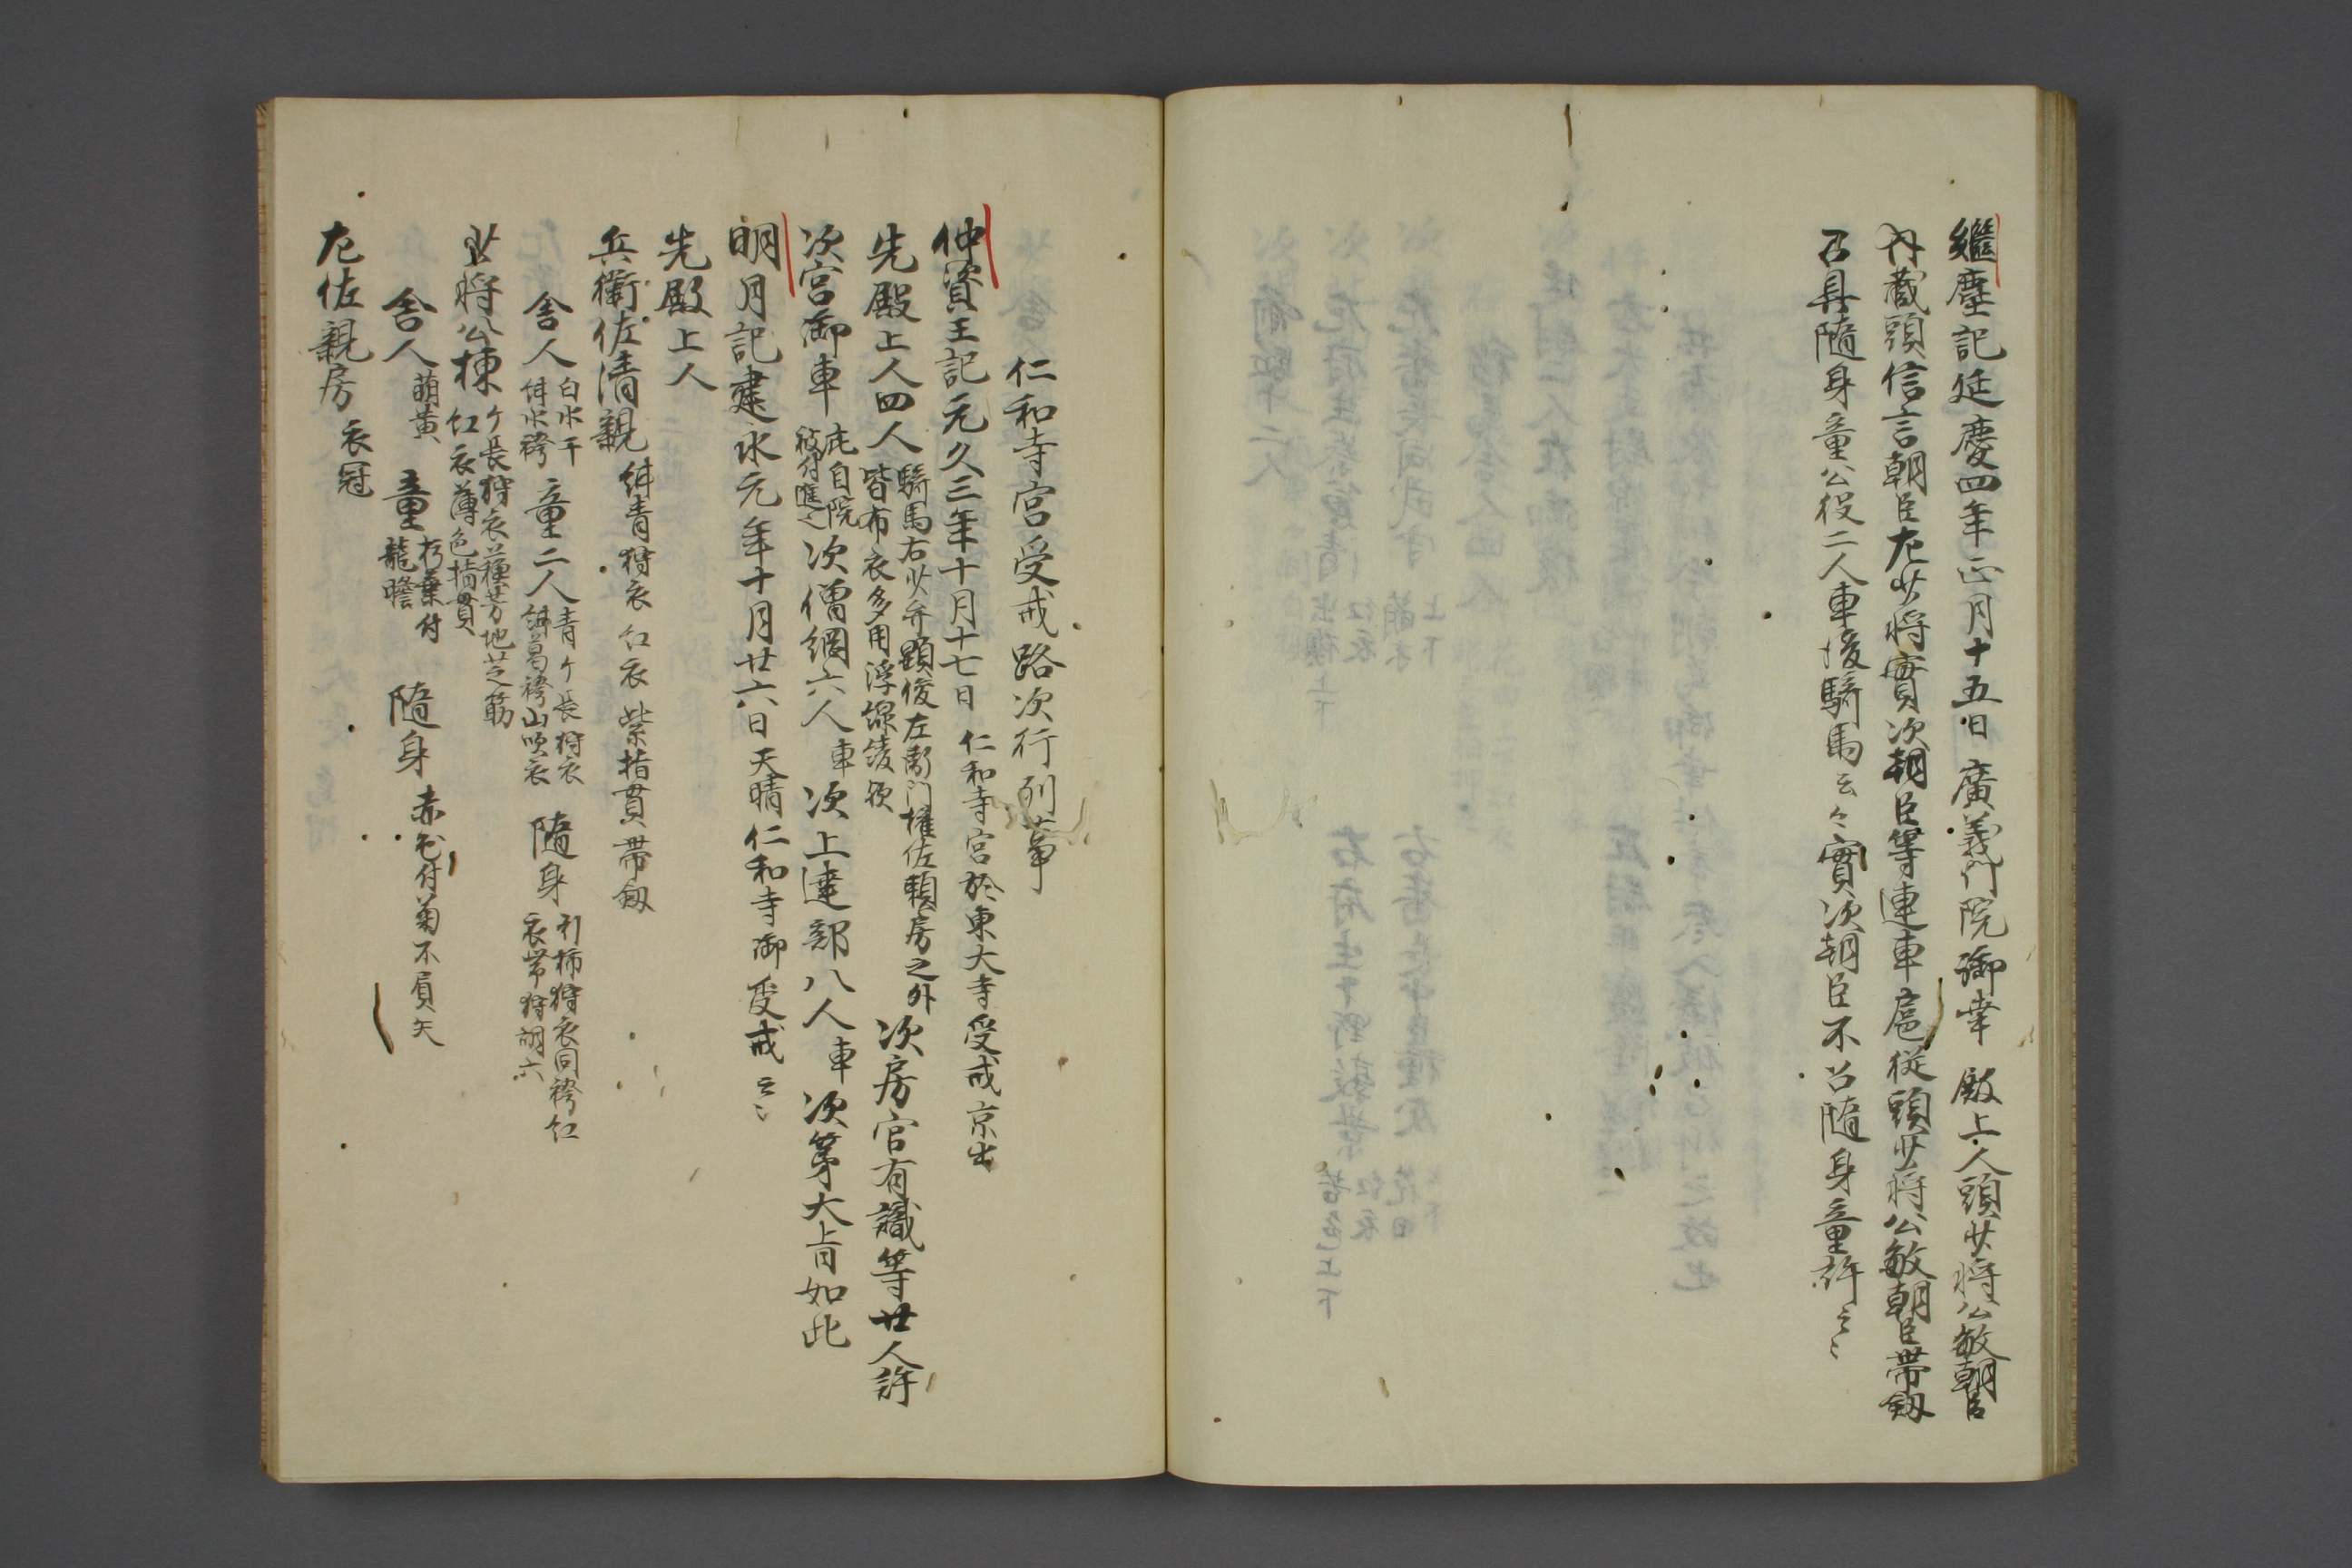 繼塵記延慶四年正月十五日 廣義門院御幸 殿上人頭少将公敏朝臣
内蔵頭信言朝臣左少将實次朝臣等連車扈従頭少将公敏朝臣帯釼
召具随身童公役二人車後騎馬云々實次朝臣不召随身童許云々
仁和寺宮受戒路次行列事
仲資王記元久三年十月十七日 仁和寺宮於東大寺受戒京出
先殿上人四人 騎馬右少弁顕俊左衛門権佐頼房之外
皆布衣多用浮線綾 次房官有識等廿人許
次宮御車 庇自院
被付進之 次僧綱六人車 次上達部八人車 次第大旨如此
明月記建永元年十月廿六日天晴仁和寺御受戒云々
先殿上人
兵衛佐清親 紺青狩衣 紅衣 紫指貫帯釼
舎人 白水干
紺水袴 童二人 青ヶ長狩衣
紺葛袴山吹衣 随身 引柿狩衣同袴紅
衣帯狩胡六
少将公棟 ケ長狩衣蘓芳地芝筋
紅衣薄色指貫
舎人 萌黄 童 朽葉付
龍膽 随身 赤色付菊不屓矢
左佐親房 衣冠